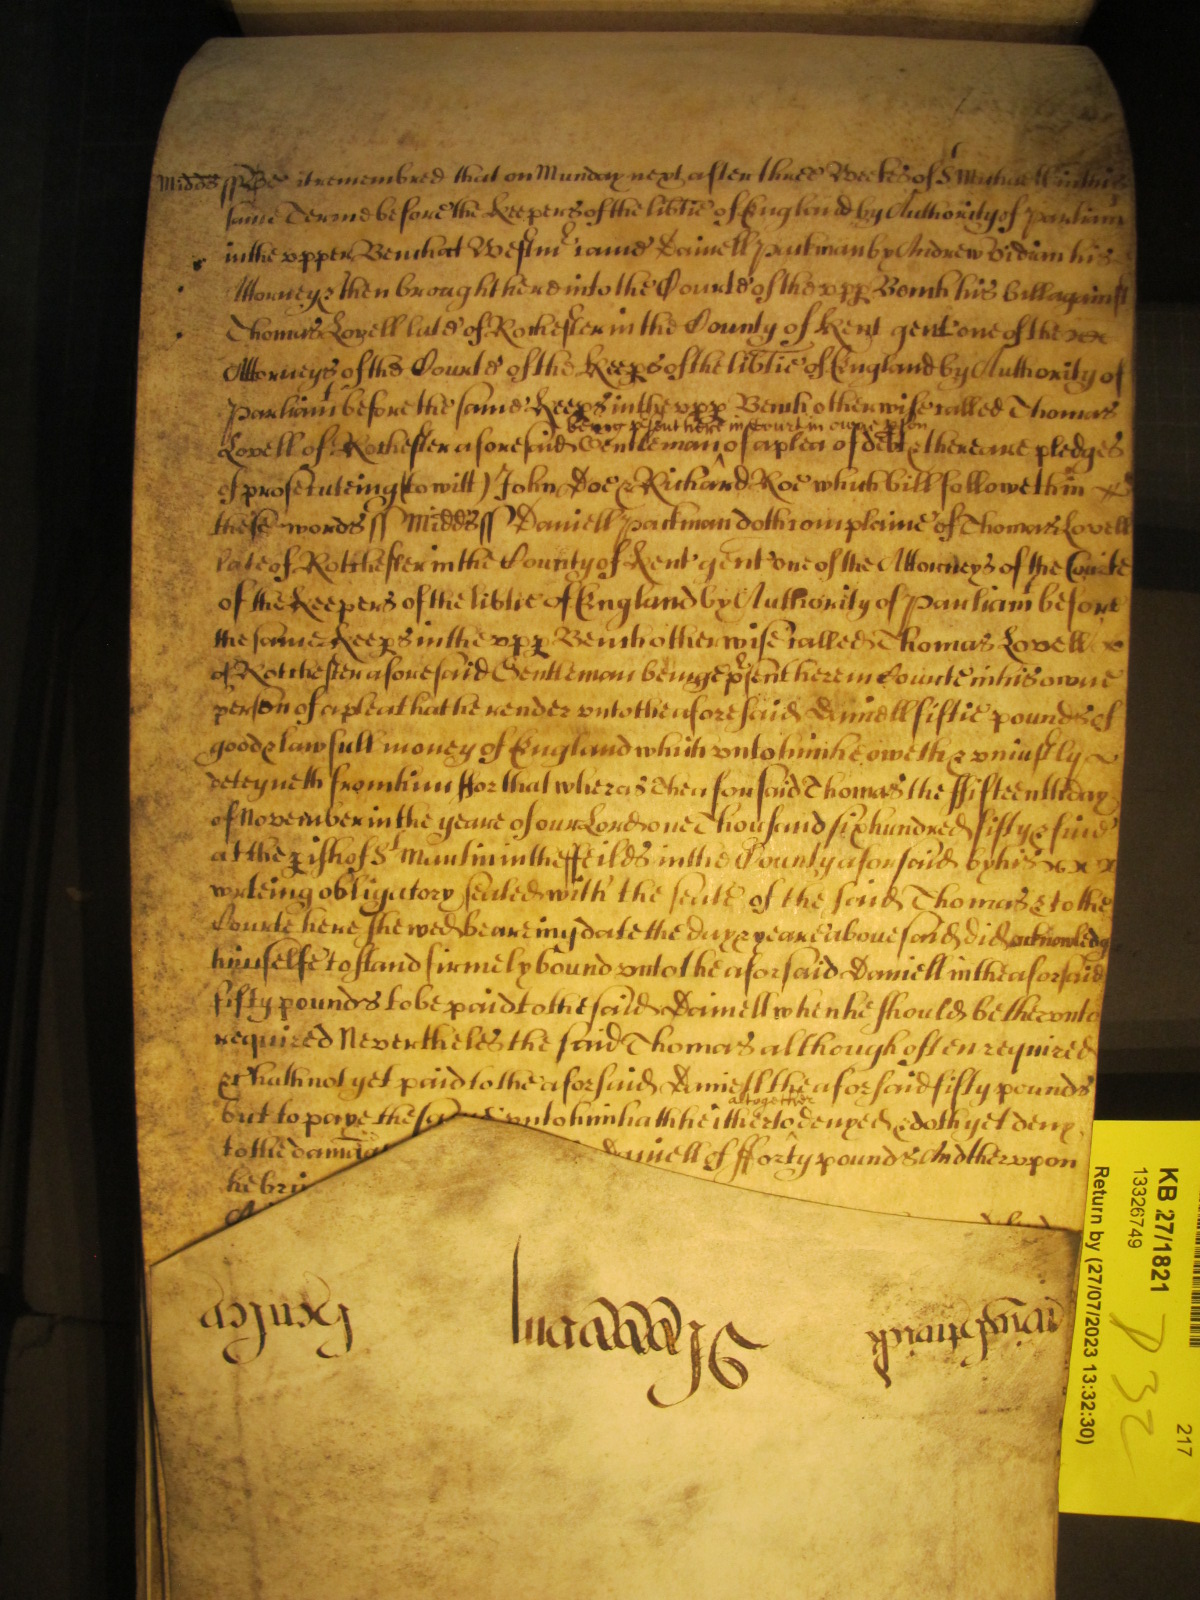 Midds ss Be it remembred that on Munday next after three Weekes of St Michaell in this
same Terme before the Keepers of the lib̃tie of England by Authority of parliamt
in the upper Bench at Westmr came Daniell Parkman by Andrew his
Attorney & then brought here into the Courte of the upp Bench his bill against
Thomas Lovell late of Rochester in the County of Kent gent one of the
Attorneys of the Courte of the Keeps of the lib̃tie of England by Authority of
Parliamt before the same Keeps in the upp Bench otherwise called Thomas
being p̱sent here in Court in owne p̱son
Lovell of Rochester aforesaid Gentleman of a plea of debt & there are pledges
of prosecuteing (to witt) John Doe & Richard Roe which bill followeth in
these words ss Midds ss Daniell Parkman doth complaine of Thomas Lovell
late of Rotchester in the County of Kent gent one of the Attorneys of the Courte
of the Keepers of the lib̃tie of England by Authority of Parliamt before
the same Keeps in the upp Bench otherwise called Thomas Lovell
of Rotchester aforesaid Gentleman being p̱sent here in Courte in his owne
person of a plea that he render unto the aforesaid Daniell fiftie pounds of
good & lawfull money of England which unto him he oweth & uniustly
deteyneth from him ffor that wheras the aforsaid Thomas the ffifteenth day
of November in the yeare of our Lord one Thousand six hundred fifty &
at the p̱ish of St Martin in the ffeilds in the County aforsaid by his
writeing obligatory sealed with the seale of the said Thomas & to the
Courte here shewed beareing date the day & yeare abovesaid did acknowledg
himselfe to stand firmely bound unto the aforsaid Daniell in the aforsaid
fifty pounds to be paid to the said Daniell when he should be therunto
required Nevertheles the said Thomas although often required
&c hath not yet paid to the aforsaid Daniell the aforsaid fifty pounds
altogether
but to paye the unto him hath hitherto denyed & doth yet deny
to the Daniell of fforty pounds And therupon
he
KB 27/1821
13326749
Return by (27/07/2023 13:32:30)
217
P 32